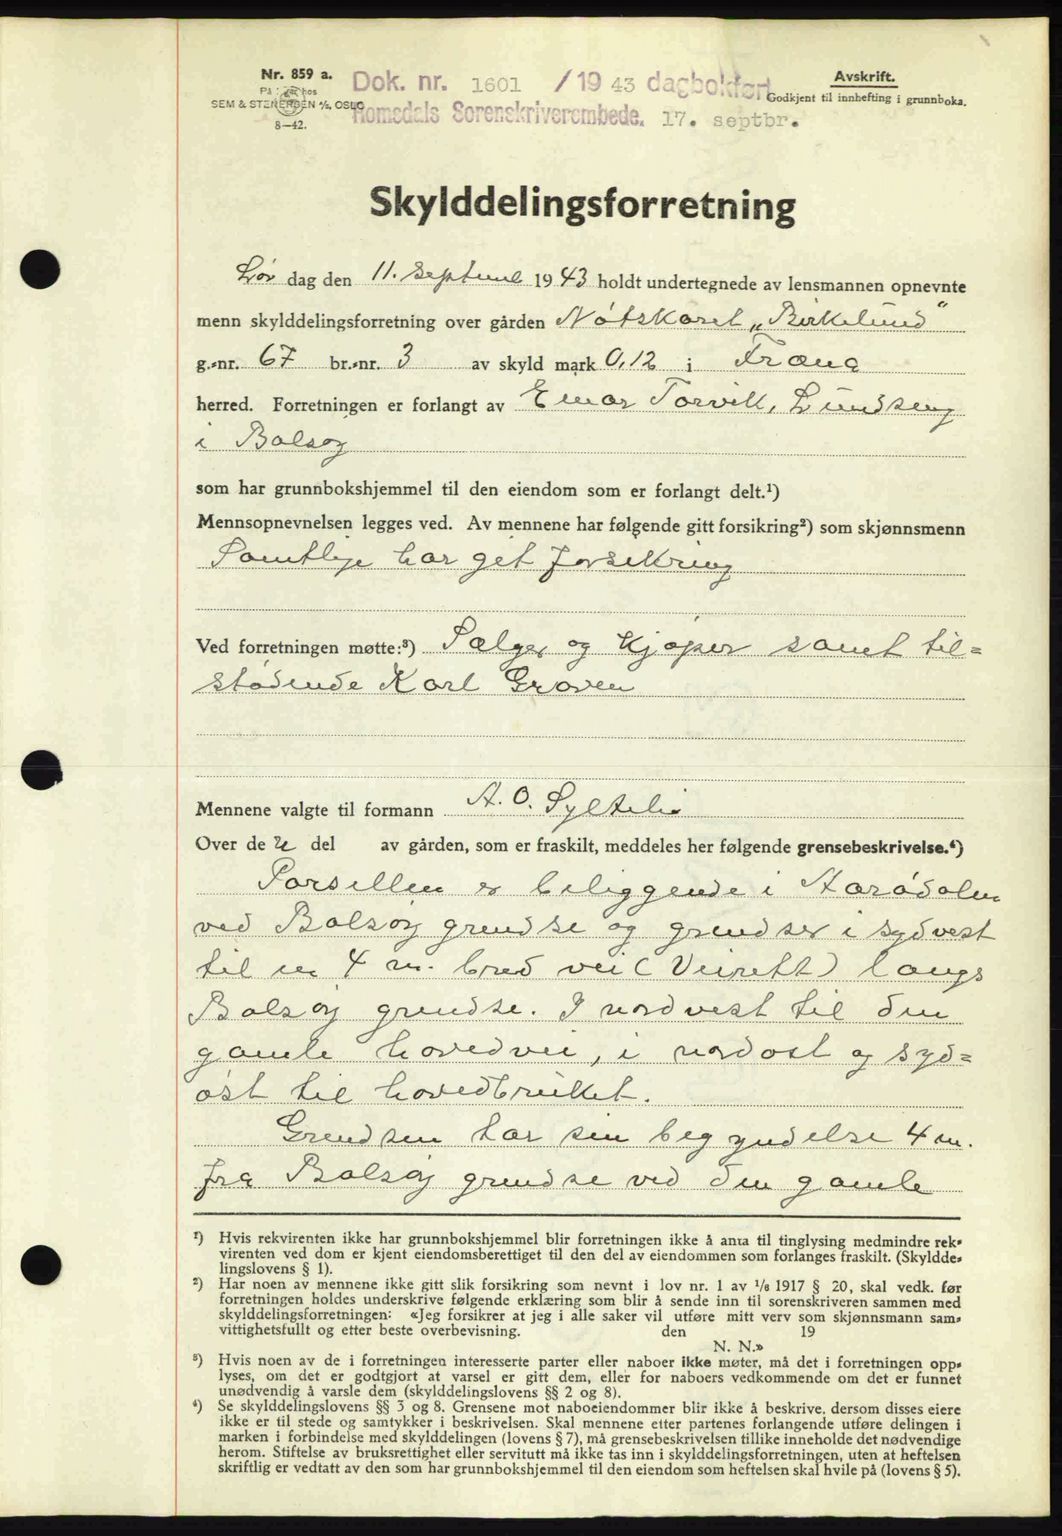 Nr. 859 a.
På lager hos
SEM & STENERSEN A/S, OSLO
8—42.
Dok. nr. 1601 /1943 dagbokført
Romsdals Sorenskriverembede. 17. septbr.
Avskrift.
Godkjent til innhefting i grunnboka.
Skylddelingsforretning
Lør dag den 11. September 1943 holdt undertegnede av lensmannen opnevnte
menn skylddelingsforretning over gården Nåtskaret „Birkelund"
g.-nr. 67 br.-nr. 3 av skyld mark 0,12 i Fræna
herred. Forretningen er forlangt av Einar Torvik, Lundseng
i Bolsøy
som har grunnbokshjemmel til den eiendom som er forlangt delt.¹)
Mennsopnevnelsen legges ved. Av mennene har følgende gitt forsikring²) som skjønnsmenn
Samtlige har git forsikring
Ved forretningen møtte:³) Sælger og Kjøper samt til=
stødende Karl Groven
Mennene valgte til formann A. O. Syltelid
Over de n del av gården, som er fraskilt, meddeles her følgende grensebeskrivelse.⁴)
Parsellen er beliggende i Aarødalen
ved Bolsøy grendse og grendser i sydvest
til en 4 m. bred vei (Veirett) langs
Bolsøy grendse. I nordvest til den
gamle hovedvei, i nordost og syd=
øst til hovedbruket.
Grendsen har sin begyndelse 4 m.
fra Bolsøy grendse ved den gamle
¹) Hvis rekvirenten ikke har grunnbokshjemmel blir forretningen ikke å anta til tinglysing medmindre rek-
virenten ved dom er kjent eiendomsberettiget til den del av eiendommen som forlanges fraskilt. (Skyldde-
lingslovens § 1).
²) Har noen av mennene ikke gitt slik forsikring som nevnt i lov nr. 1 av ¹/₈ 1917 § 20, skal vedk. før
forretningen holdes underskrive følgende erklæring som blir å sende inn til sorenskriveren sammen med
skylddelingsforretningen: «Jeg forsikrer at jeg i alle saker vil utføre mitt verv som skjønnsmann sam-
vittighetsfullt og etter beste overbevisning. den 19
N. N.»
³) Hvis noen av de i forretningen interesserte parter eller naboer ikke møter, må det i forretningen opp-
lyses, om det er godtgjort at varsel er gitt dem, eller for naboers vedkommende om det er funnet
unødvendig å varsle dem (skylddelingslovens §§ 2 og 8).
⁴) Se skylddelingslovens §§ 3 og 8. Grensene mot naboeiendommer blir ikke å beskrive, dersom disses eiere
ikke er til stede og samtykker i beskrivelsen. Skal mennene etter partenes forlangende utføre delingen i
marken i forbindelse med skylddelingen (lovens § 7), må grensebeskrivelsen tillike inneholde det nødvendige
herom. Stiftelse av bruksrettighet eller servitutt må ikke tas inn i skylddelingsforretningen, uten at heftelsen
skriftlig er vedtatt av den som har grunnbokshjemmel til den eiendom som heftelsen skal hvile på (lovens § 5).